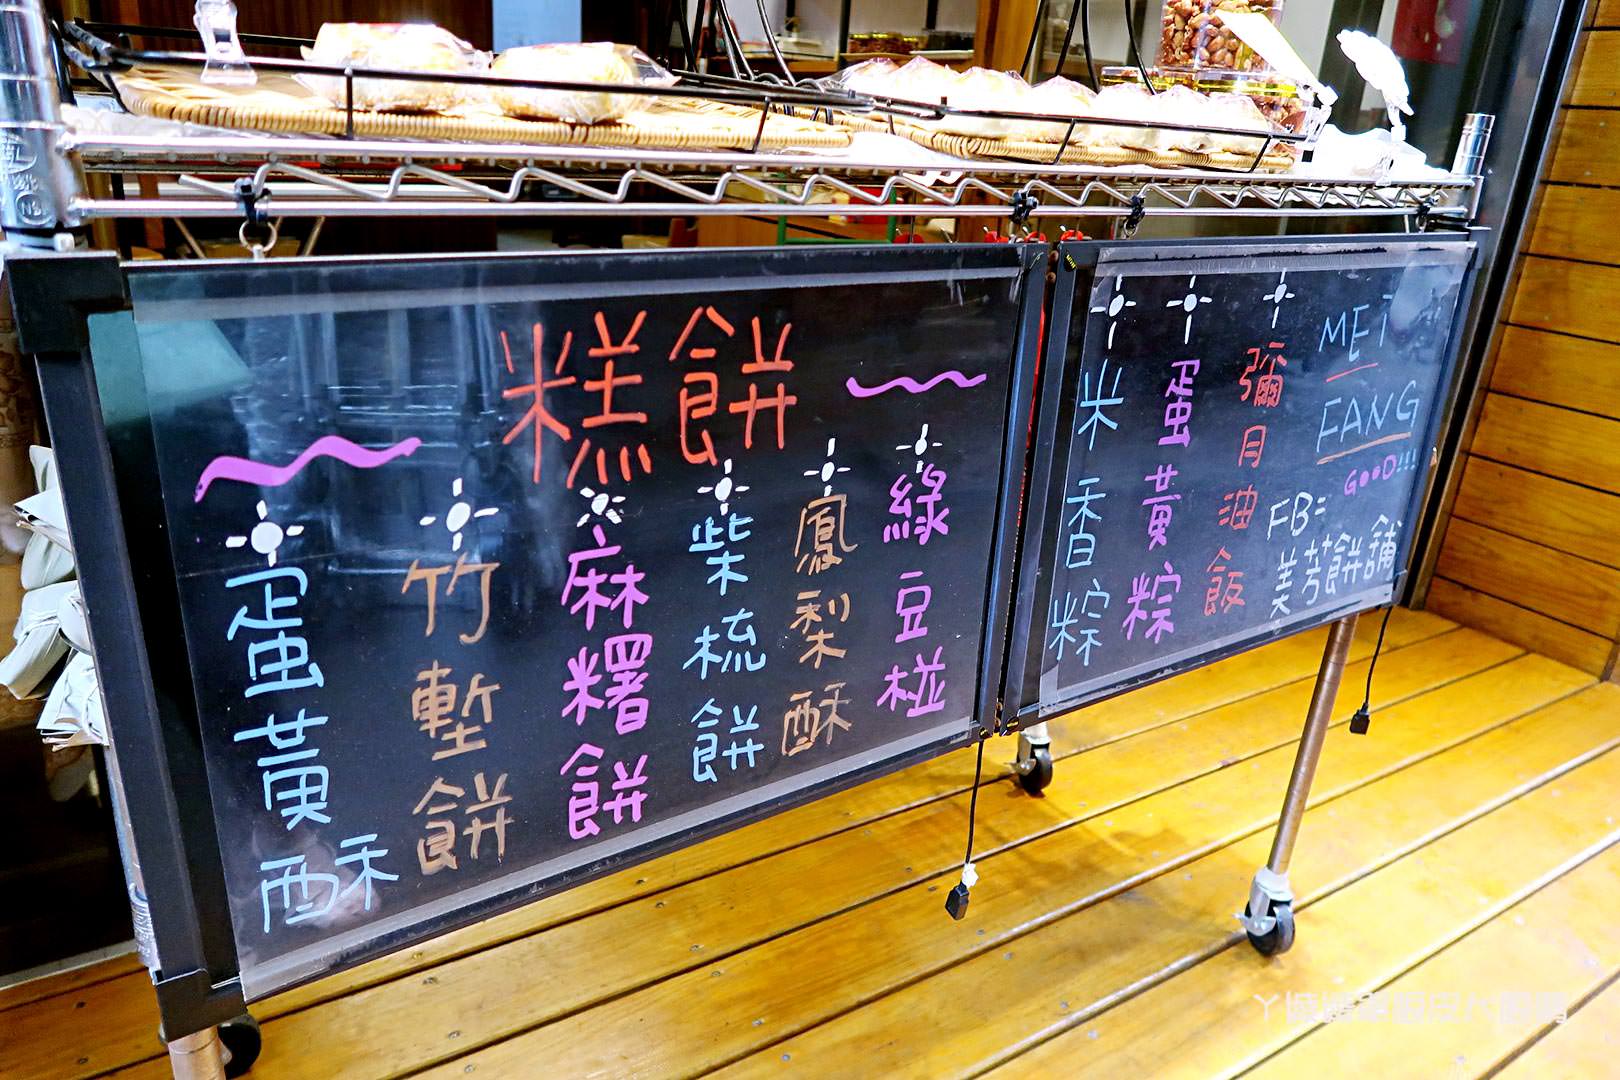 糕餅
蛋黃酥
竹塹餅
麻糬餅
柴梳餅
鳳梨酥
綠豆椪
米香粽
蛋黃粽
彌月油飯
MEI
FANG
GOOD!!!
FB:
美芳餅舖